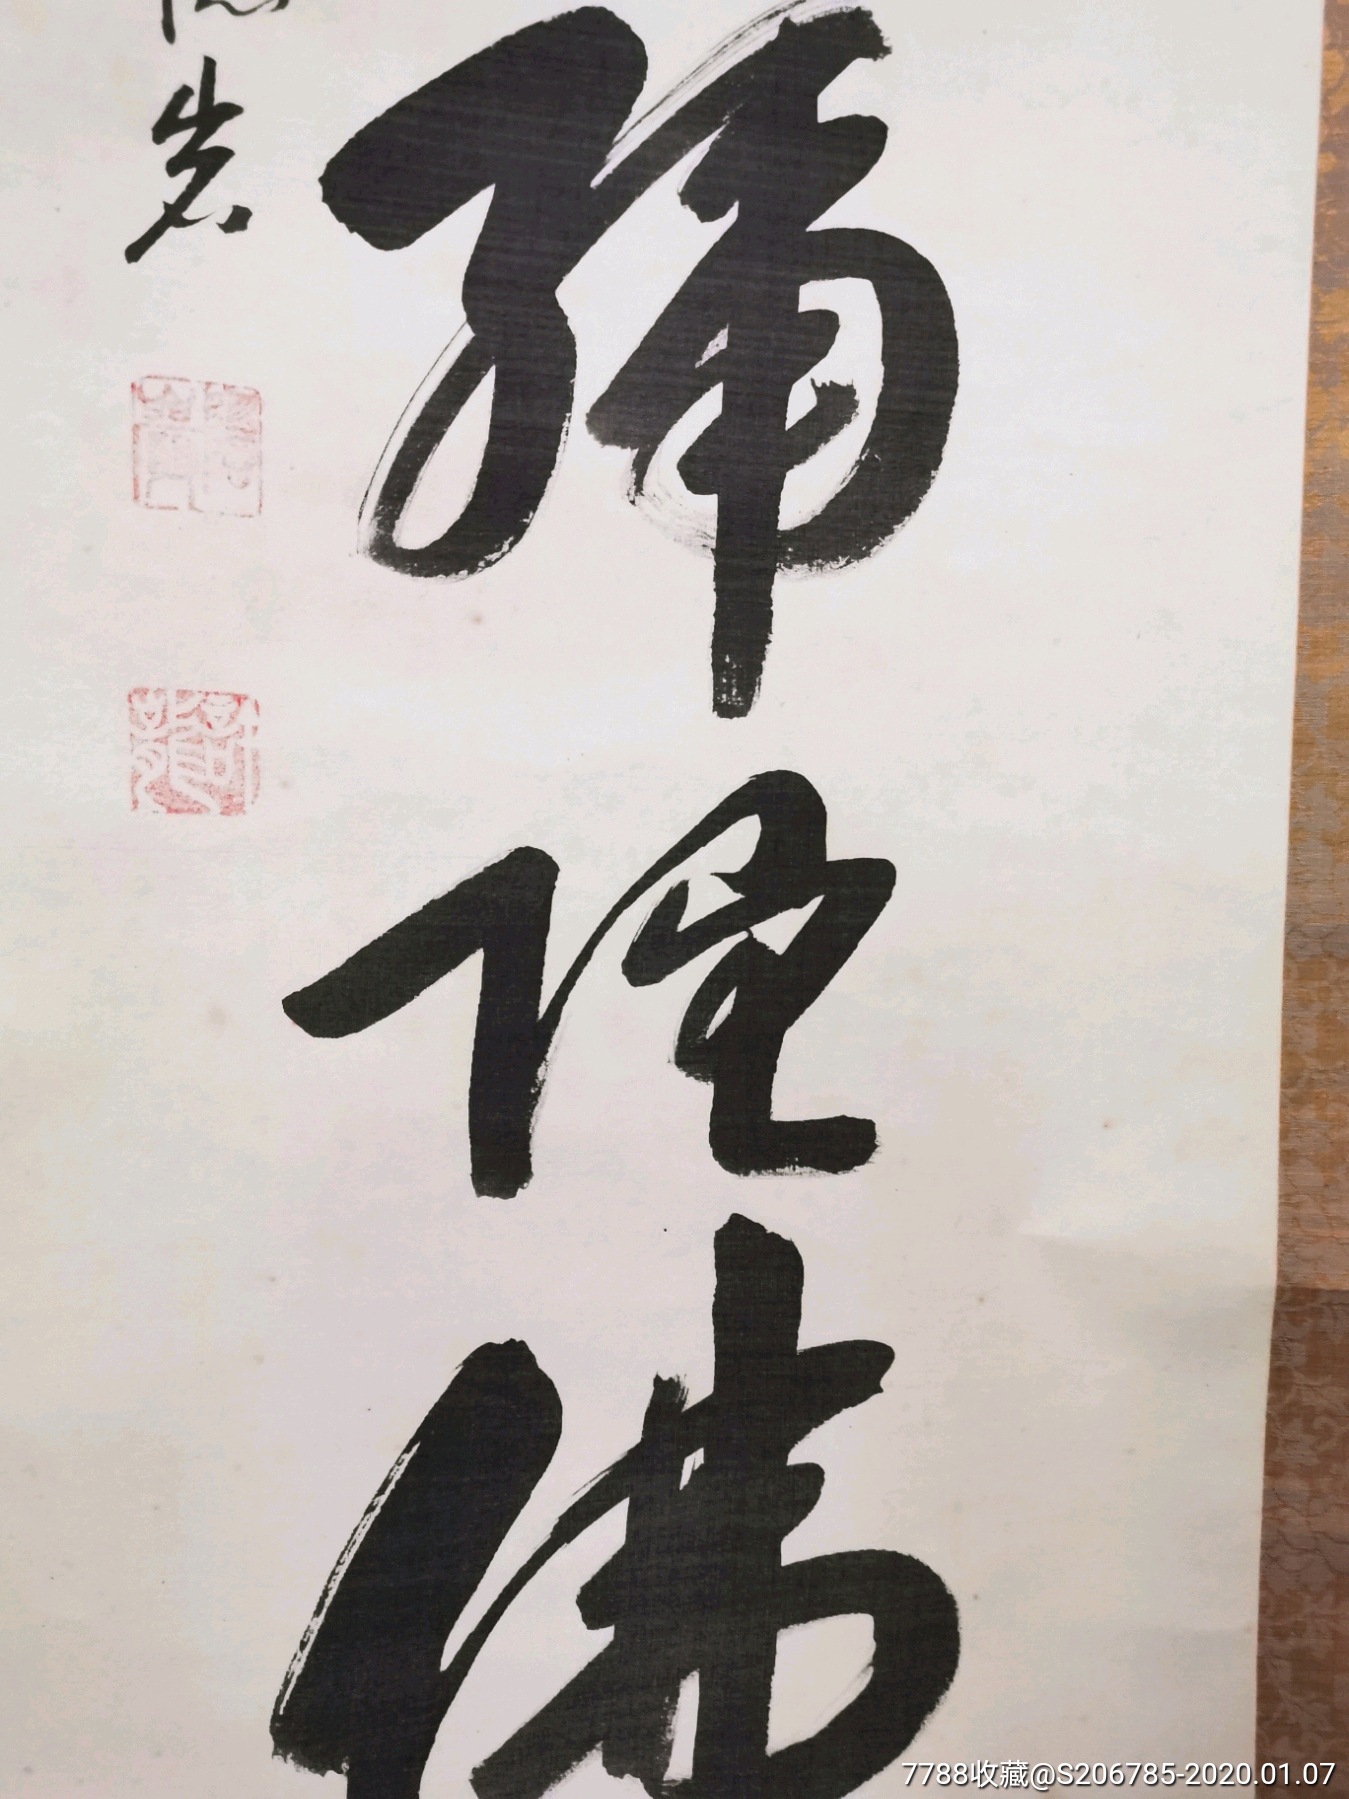 彌陀佛
岩
7788收藏@S206785-2020.01.07